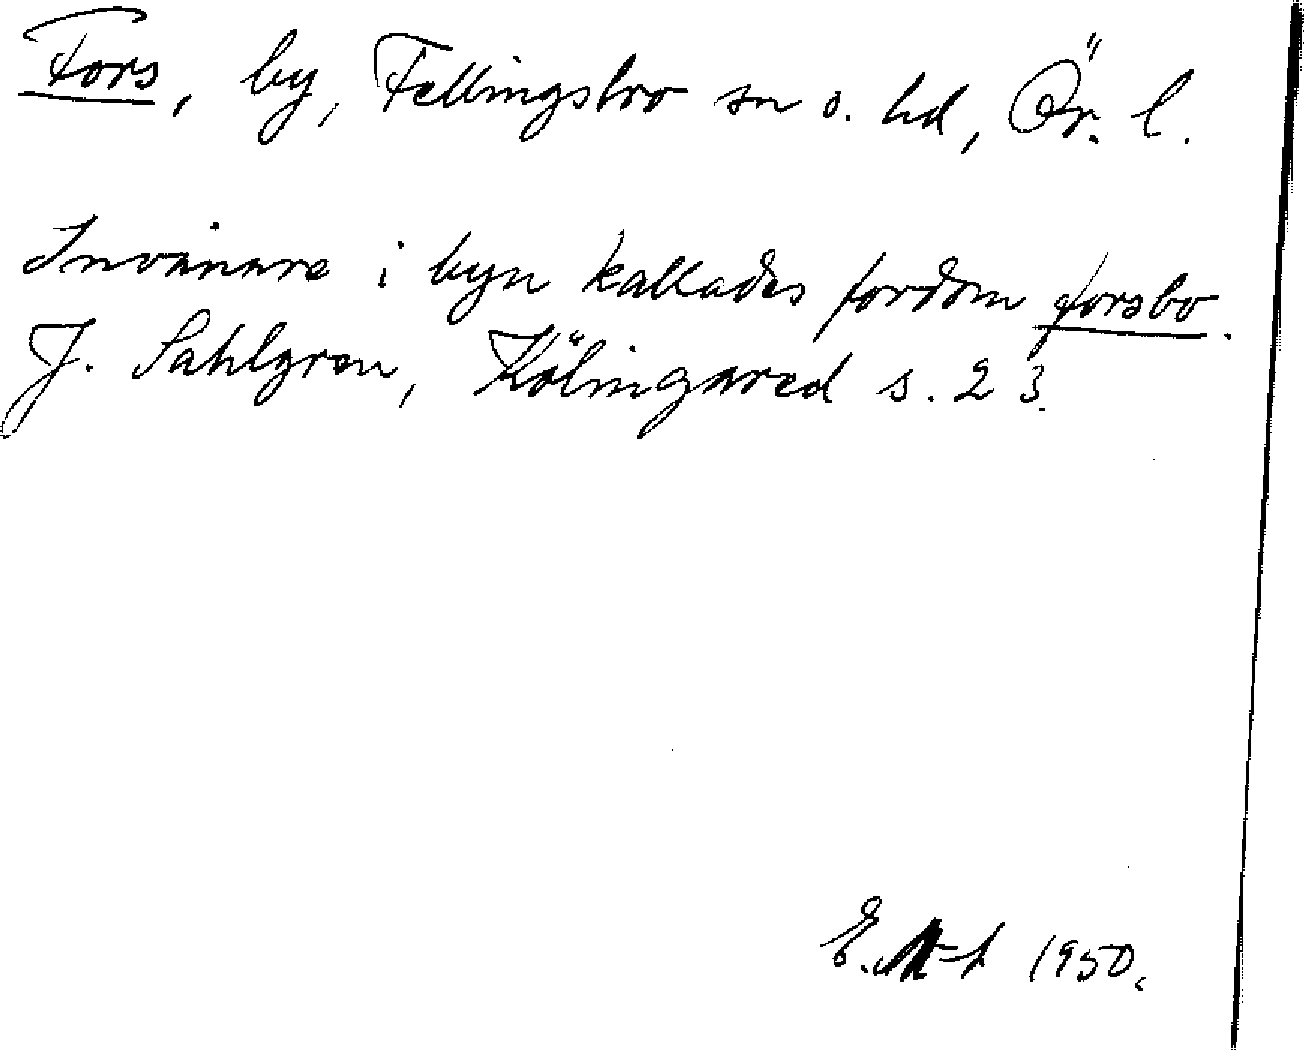 Fors, by, Fellingsbro sn o. hd, Ör. l.
Invånare i byn kallades fordom forsbo.
J. Sahlgren, Kölingared s. 23.
1950.